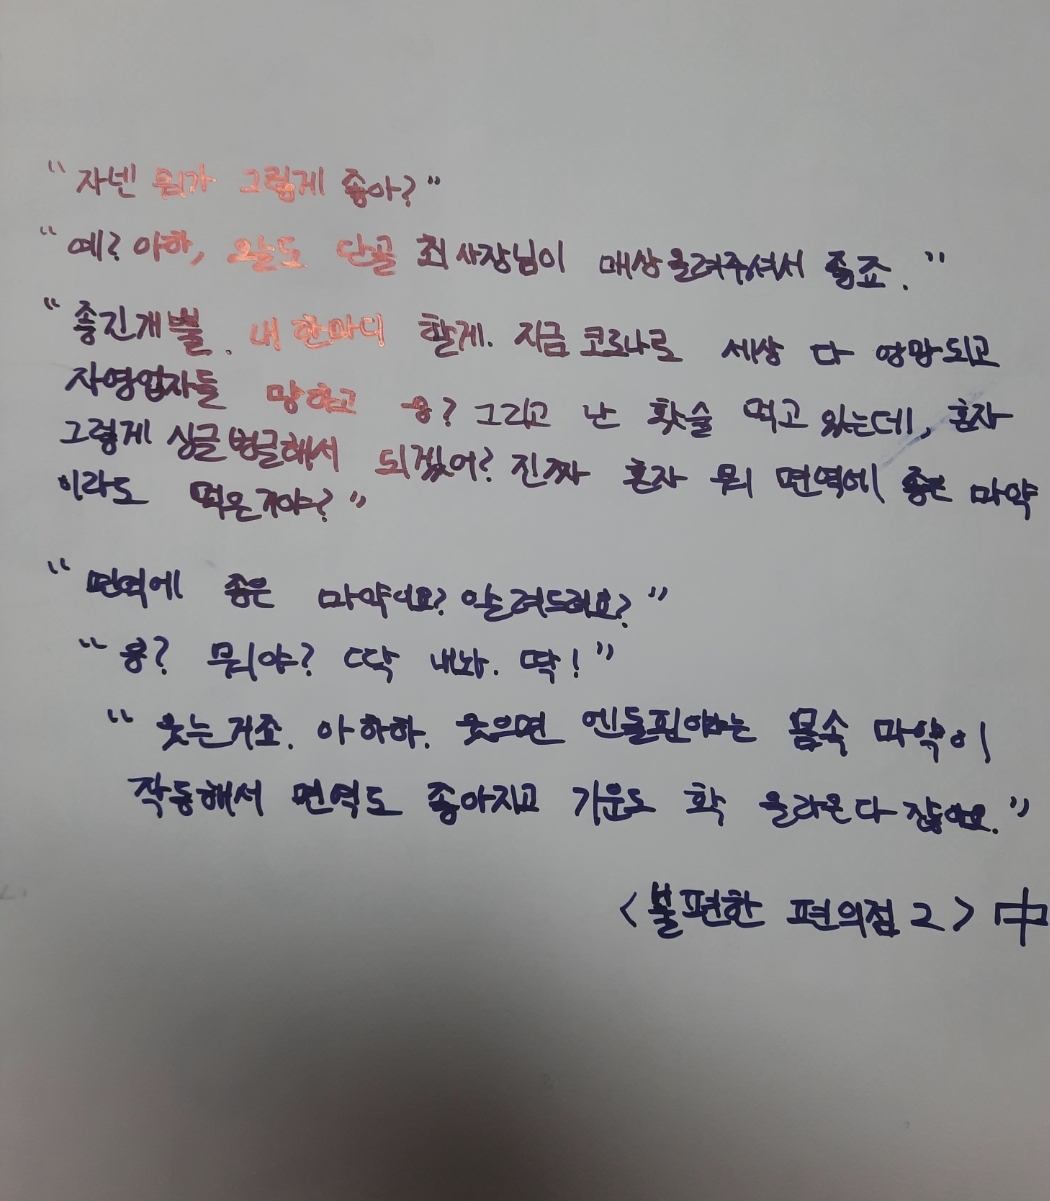 "자넨 뭐가 그렇게 좋아?"
"예? 아하, 오늘도 단골 최사장님이 매상올려주셔서 좋죠."
"좋긴개뿔. 내 한마디 할게. 지금 코로나로 세상 다 엉망되고
자영업자들 망하고 응? 그리고 난 홧술 먹고 있는데, 혼자
그렇게 싱글벙글해서 되겠어? 진짜 혼자 뭐 면역에 좋은 마약
이라도 먹은거야?"
"면역에 좋은 마약이요? 알려드려요?"
"응? 뭐야? 딱 내놔. 딱!"
"웃는거죠. 아 하하. 웃으면 엔돌핀이라는 몸속 마약이
작동해서 면역도 좋아지고 기운도 확 올라온다 잖아요."
<불편한 편의점 2> 中